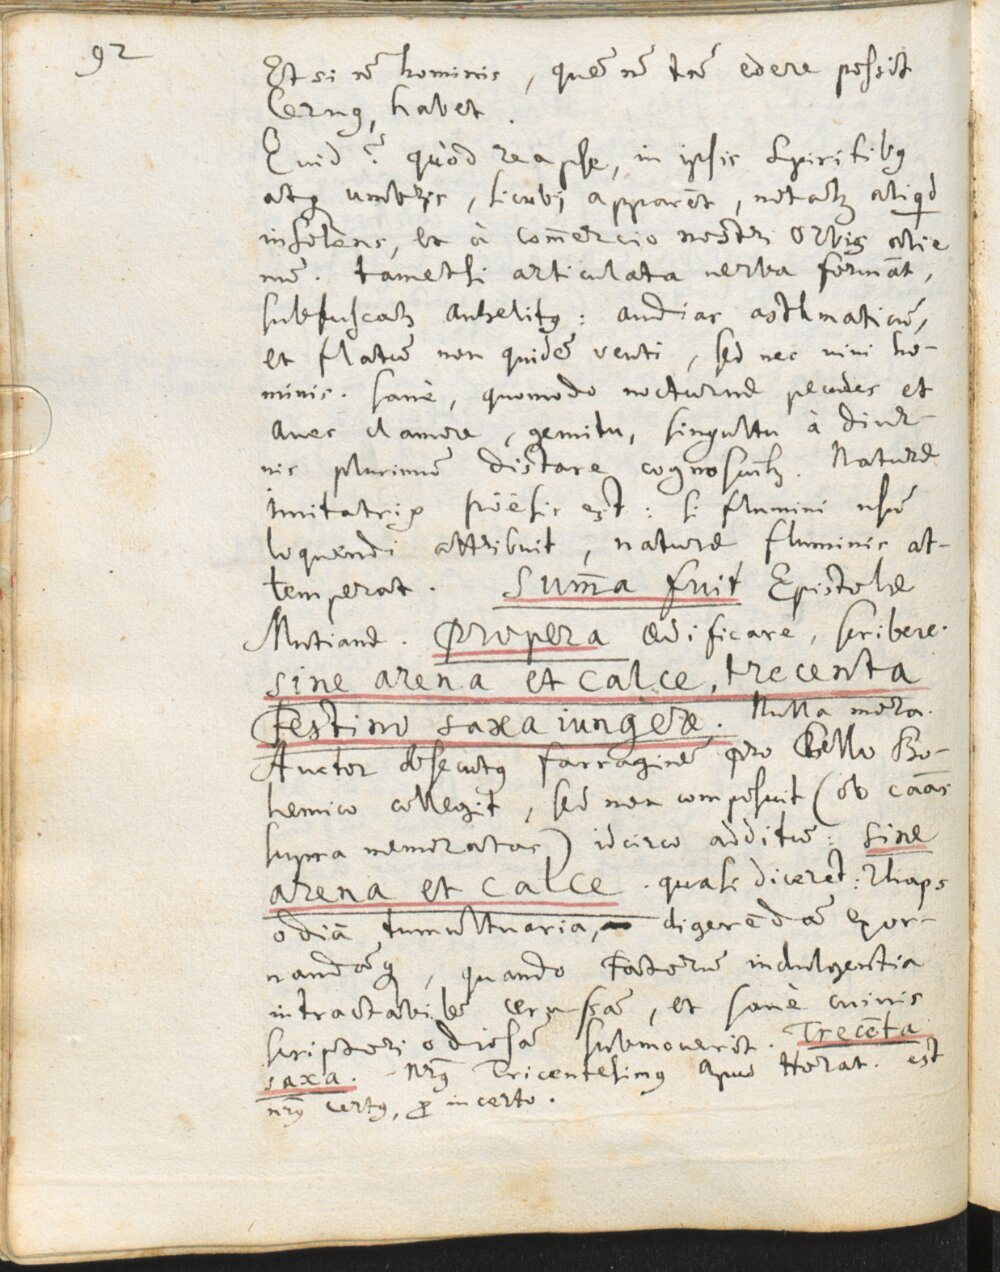 92
Et si nō hominis, quē nō tm̄ edere possit
Cervg, habet.
Quid? quòd reapse, in ipsis spiritibg
atq umbris, sicubi apparēt, notatr aliqd
insolens, et à com̄ercio nostri Orbis alie
nū. tametsi articulata verba formāt,
subfuscatr anhelitg: audias asthmaticū,
et flatū non quidē venti, sed nec vivi ho-
minis. sanè, quomodo nocturnæ pecudes et
aves clamore, gemitu, singultu à diur-
nis plurimū distare cognoscuntr. Naturæ
imitatrix poësis est: si flumini usū
loquendi attribuit, naturæ fluminis at-
temperat. Sum̄a fuit Epistolæ
Mutianæ. Propera ædificare, scribere.
sine arena et calce, trecenta
festino saxa iungere. Nulla mora.
Auctor desecutg farraginē pro Bello Bo-
hemico collegit, sed non composuit (ob cāas
supra memoratas) idcirco additū: sine
arena et calce. quasi diceret: Rhaps
odiā tumultuaria, digerēdā exor-
nandāq, quando fatorū indulgentia
intractabilē cerussā, et sanè cuivis
scriptori odiosā submoverit. Trecēta
saxa. Nrg Tricentesimg apud Horat. est
nrg certg, p incerto.